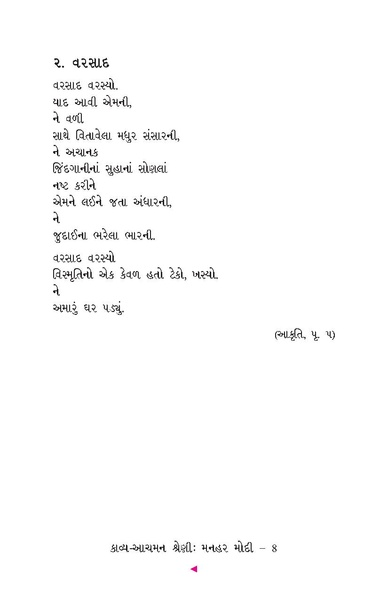 ૨. વરસાદ
વરસાદ વરસ્યો.
યાદ આવી એમની,
ને વળી
સાથે વિતાવેલા મધુર સંસારની,
ને અચાનક
જિંદગાનીનાં સુહાનાં સોણલાં
નષ્ટ કરીને
એમને લઈને જતા અંધારની,
ને
જુદાઈના ભરેલા ભારની.
વરસાદ વરસ્યો
વિસ્મૃતિનો એક કેવળ હતો ટેકો, ખસ્યો.
ને
અમારું ઘર પડ્યું.
(આકૃતિ, પૃ. ૫)
કાવ્ય-આચમન શ્રેણીઃ મનહર મોદી – 8